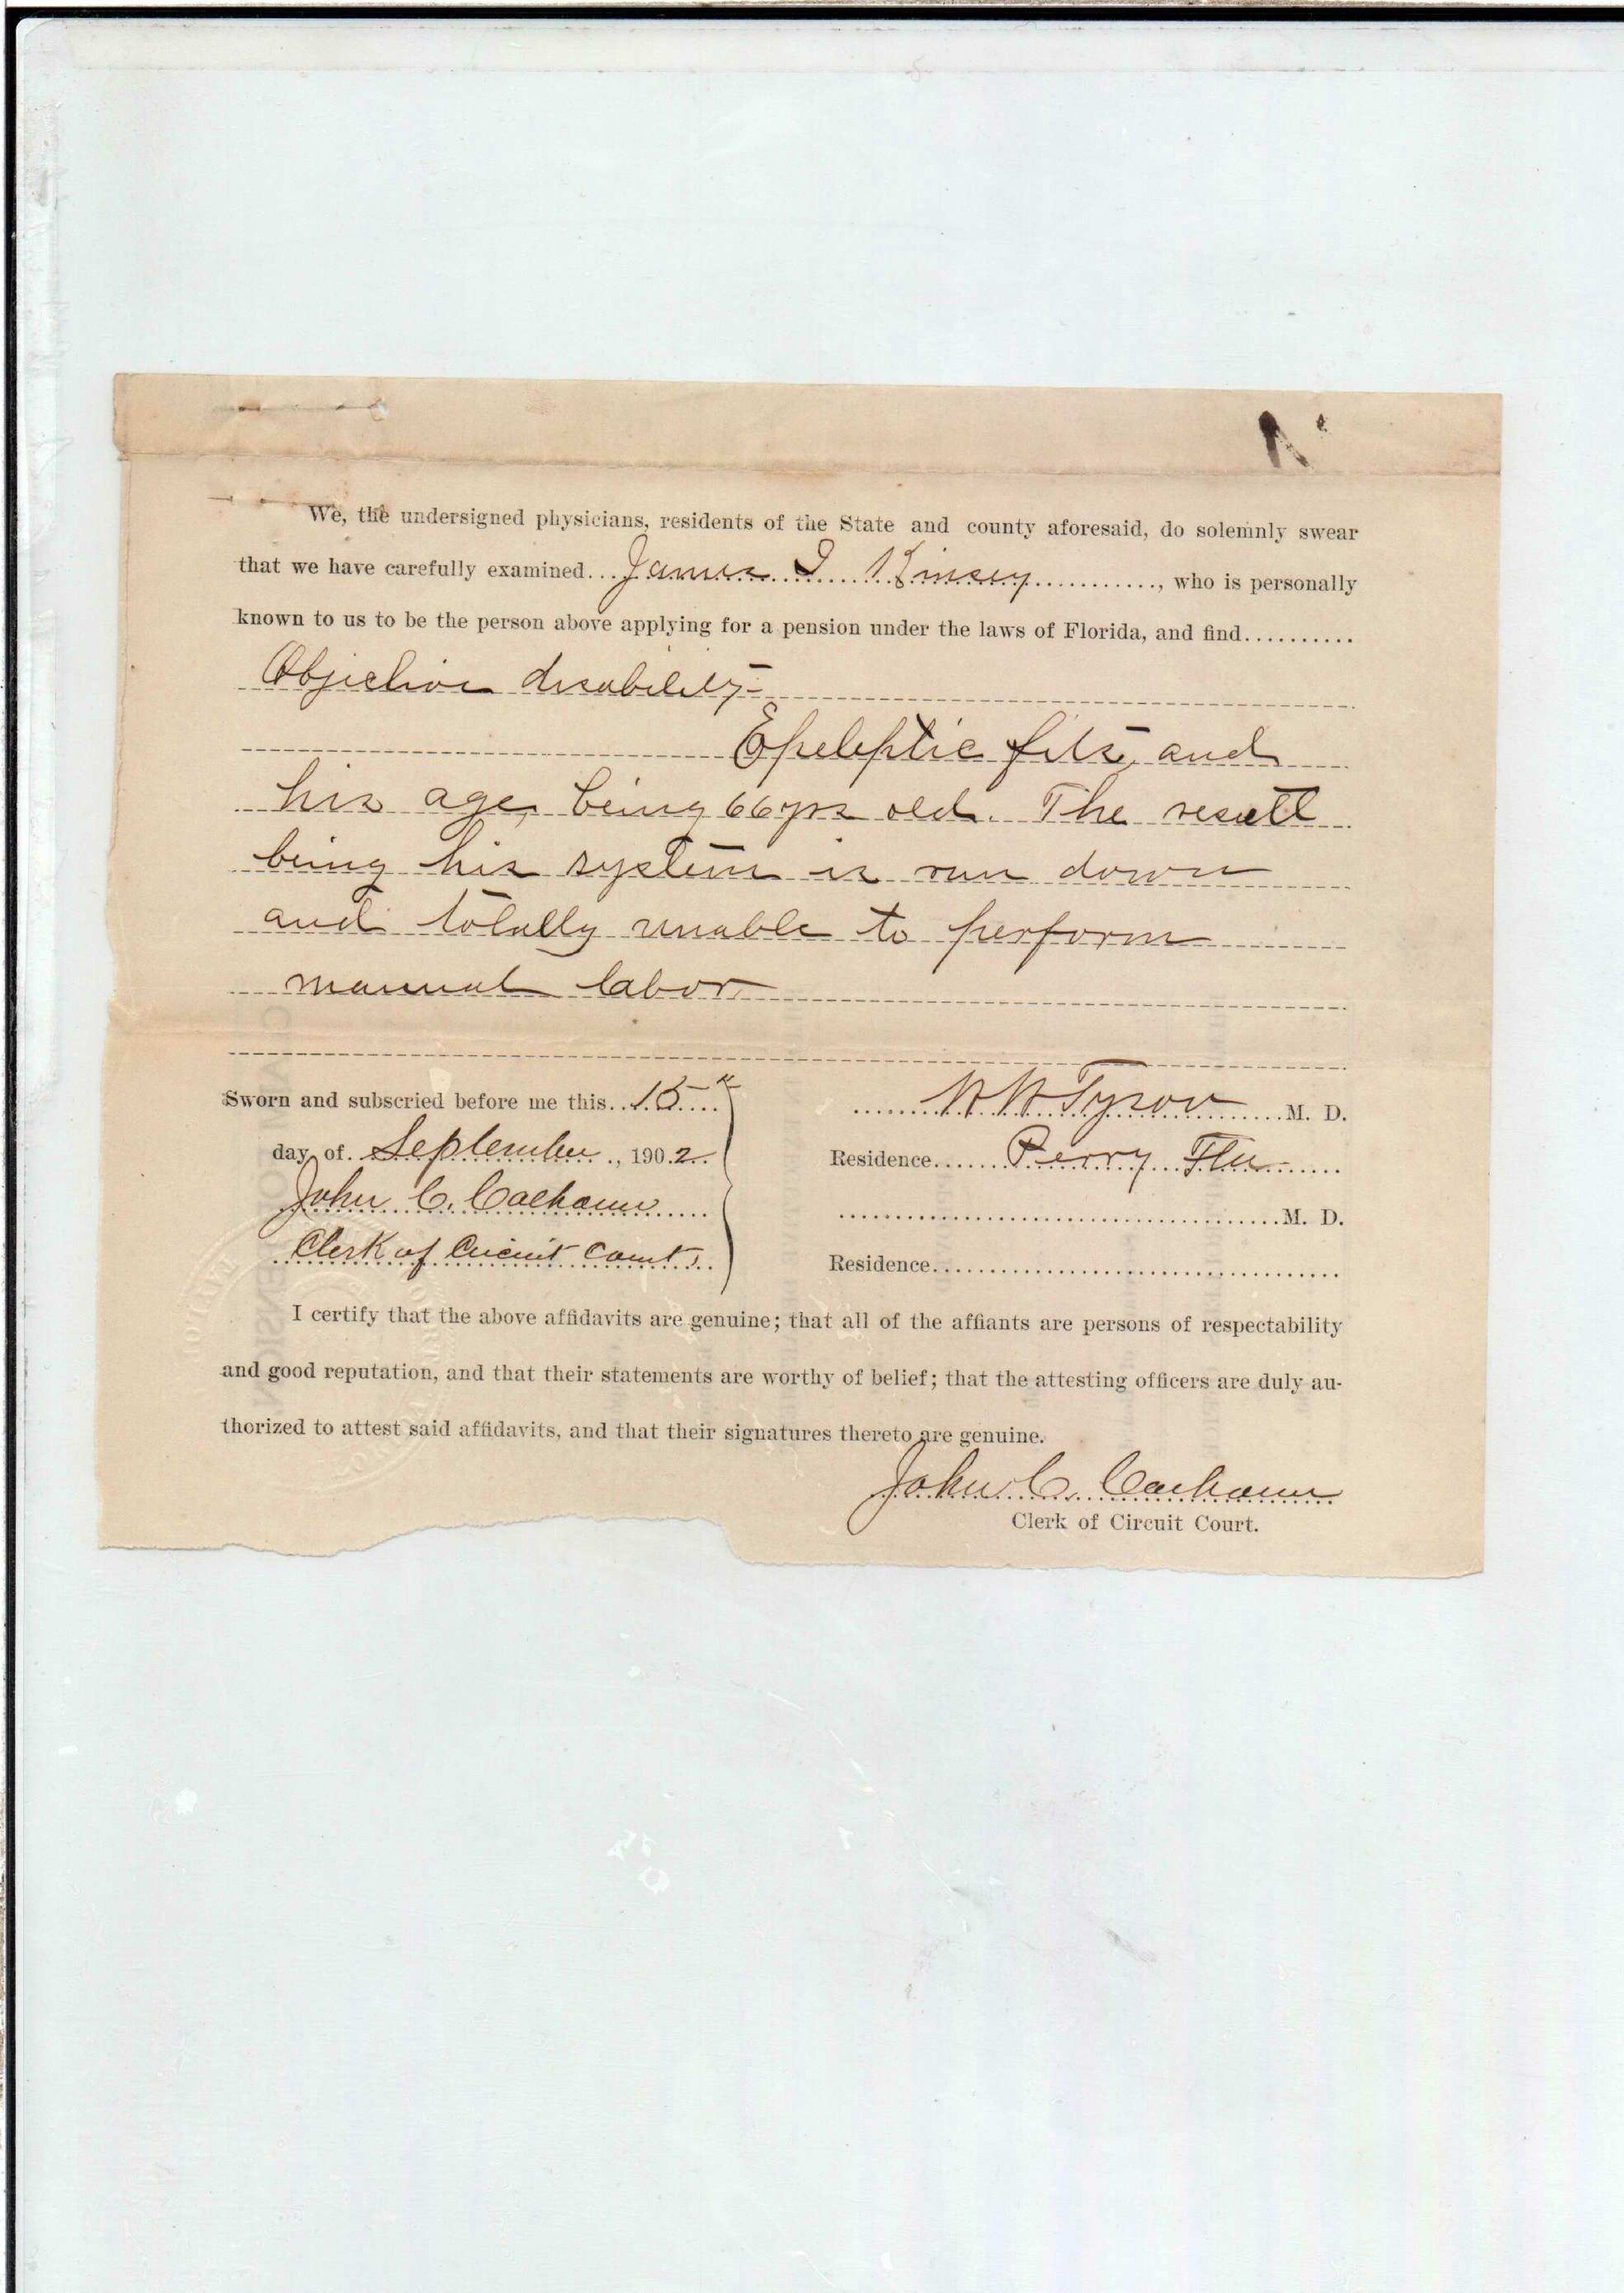 We, the undersigned physicians, residents of the State and county aforesaid, do solemnly swear
that we have carefully examined...James I Kinsey............, who is personally
known to us to be the person above applying for a pension under the laws of Florida, and find..........
Objective disability-
Epeleptic fits, and
his age, being 66 yrs old. The result
being his system is run down
and totally unable to perform
manual labor.
Sworn and subscried before me this...15th....
day of..September..., 1902..
John C. Calhoun
Clerk of Circuit Court.
Tyson M. D.
Residence......Perry Fla......
M. D.
Residence....................................
I certify that the above affidavits are genuine; that all of the affiants are persons of respectability
and good reputation, and that their statements are worthy of belief; that the attesting officers are duly au-
thorized to attest said affidavits, and that their signatures thereto are genuine.
John C. Calhoun
Clerk of Circuit Court.